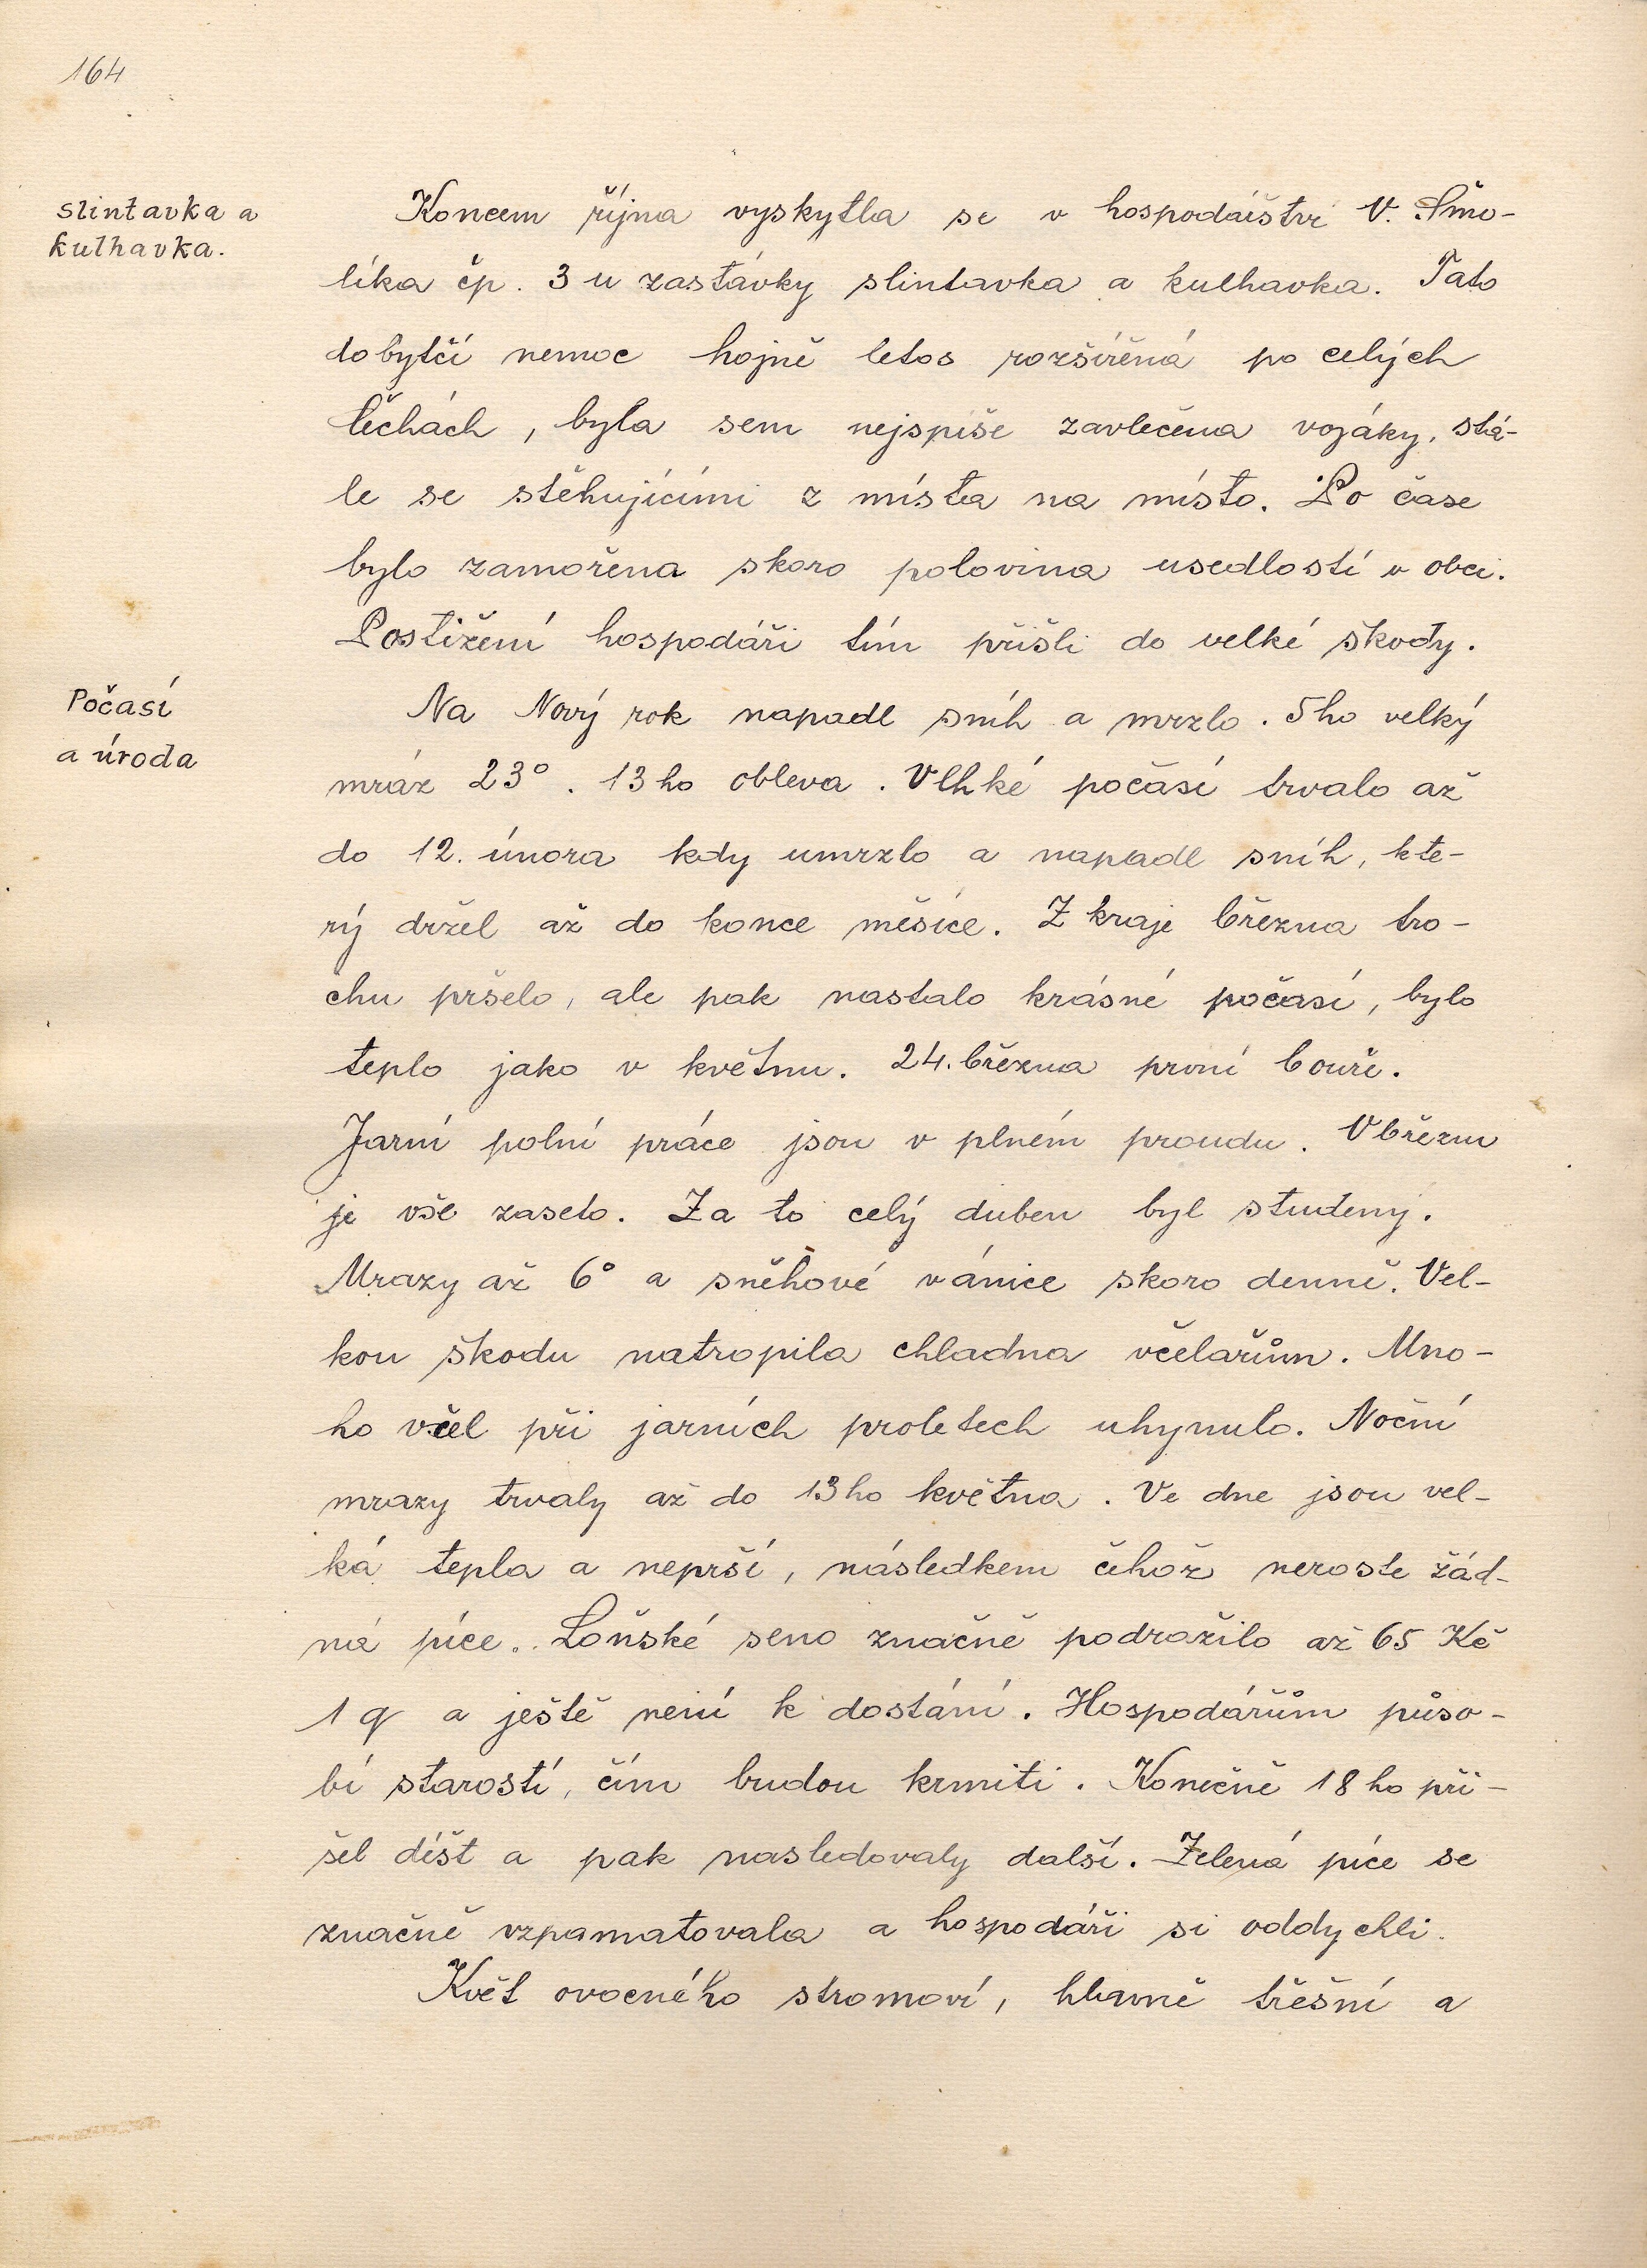 164
Slintavka a
kulhavka.
Koncem října vyskytla se v hospodářství V. Šmo-
líka čp. 3 u zastávky slintavka a kulhavka. Tato
dobytčí nemoc hojně letos rozšířěná po celých
Čechách, byla sem nejspíše zavlečena vojáky, stá-
le se stěhujícími z místa na místo. Po čase
bylo zamořena skoro polovina usedlostí v obci.
Postižení hospodáři tím přišli do velké škody.
Počasí
a úroda
Na Nový rok napadl sníh a mrzlo. 5ho velký
mráz 23°. 13ho obleva. Vlhké počasí trvalo až
do 12. února kdy umrzlo a napadl sníh, kte-
rý držel až do konce měsíce. Z kraje března tro-
chu pršelo, ale pak nastalo krásné počasí, bylo
teplo jako v květnu. 24. března první bouře.
Jarní polní práce jsou v plném proudu. V březnu
je vše zaseto. Za to celý duben byl studený.
Mrazy až 6° a sněhové vánice skoro denně. Vel-
kou škodu natropila chladna včelařům. Mno-
ho včel při jarních proletech uhynulo. Noční
mrazy trvaly až do 13ho května. Ve dne jsou vel-
ká tepla a neprší, následkem čehož neroste žád-
ná píce. Loňské seno značně podražilo až 65 Kč
1 q a ještě není k dostání. Hospodářům půso-
bí starostí, čím budou krmiti. Konečně 18ho při-
šel déšt a pak nasledovaly další. Zelená píce se
značně vzpamatovala a hospodáři si oddychli.
Květ ovocného stromoví, hlavně třešní a